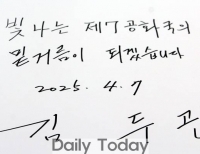 빛나는 제7공화국의
밑거름이 되겠습니다
2025. 4. 7
김 두 관
Daily Today